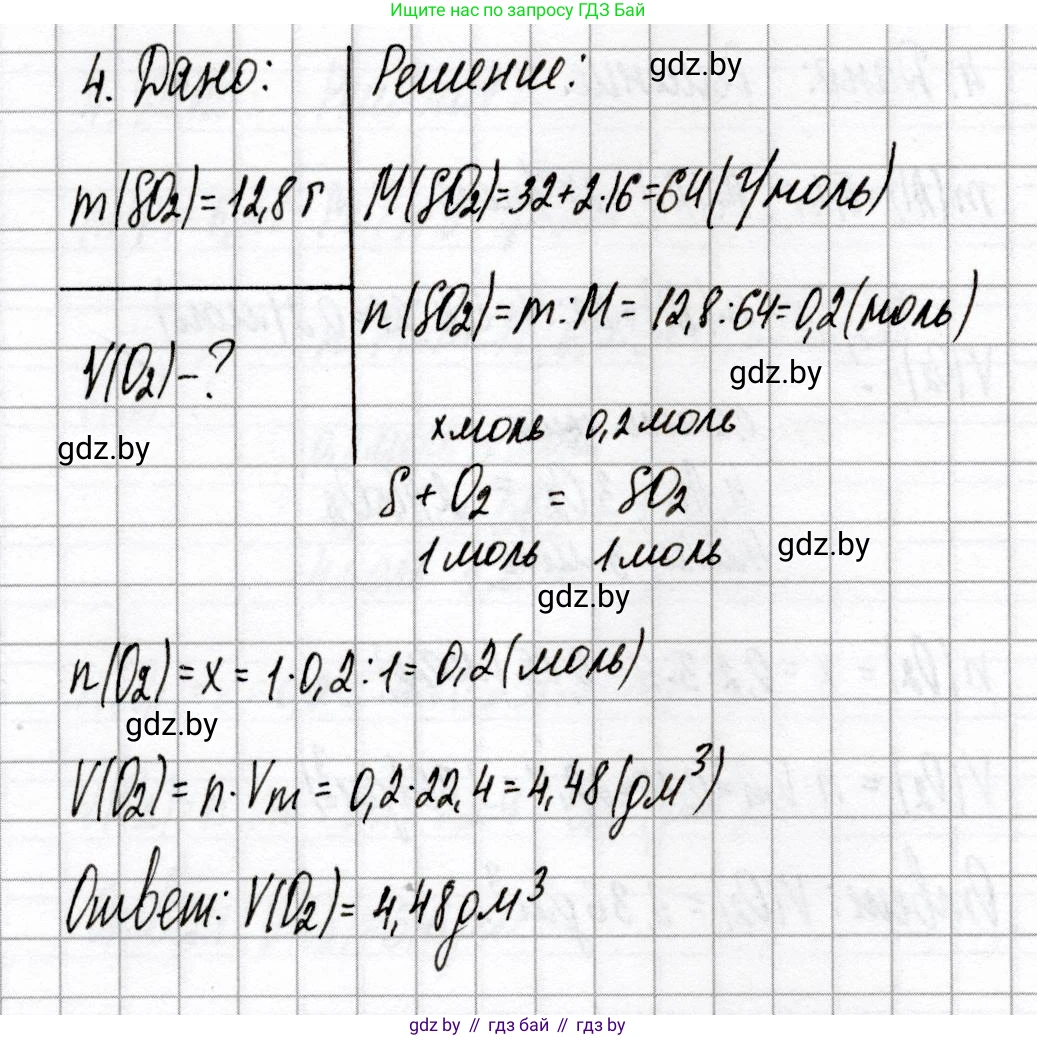 Ищите нас по запросу ГДЗ Бай
4. Дано:
Решение:
gdz.by
m(SO₂)=12,8 г
M(SO₂)=32+2·16=64(г/моль)
n(SO₂)=m:M=12,8:64=0,2(моль)
V(O₂)-?
gdz.by
gdz.by
xмоль 0,2моль
S+O₂ = SO₂
1моль 1моль
gdz.by
gdz.by
n(O₂)=x=1·0,2:1=0,2(моль)
gdz.by
V(O₂)=n·Vm=0,2·22,4=4,48(дм³)
Ответ: V(O₂)=4,48дм³
gdz.by // гдз бай // gdz.by